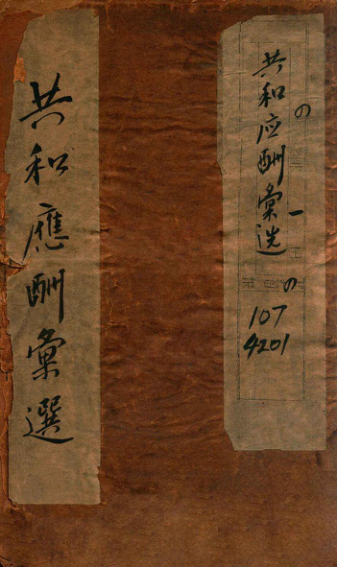 共和应酬彙选
の
一
の
107
4201
共和應酬彙選